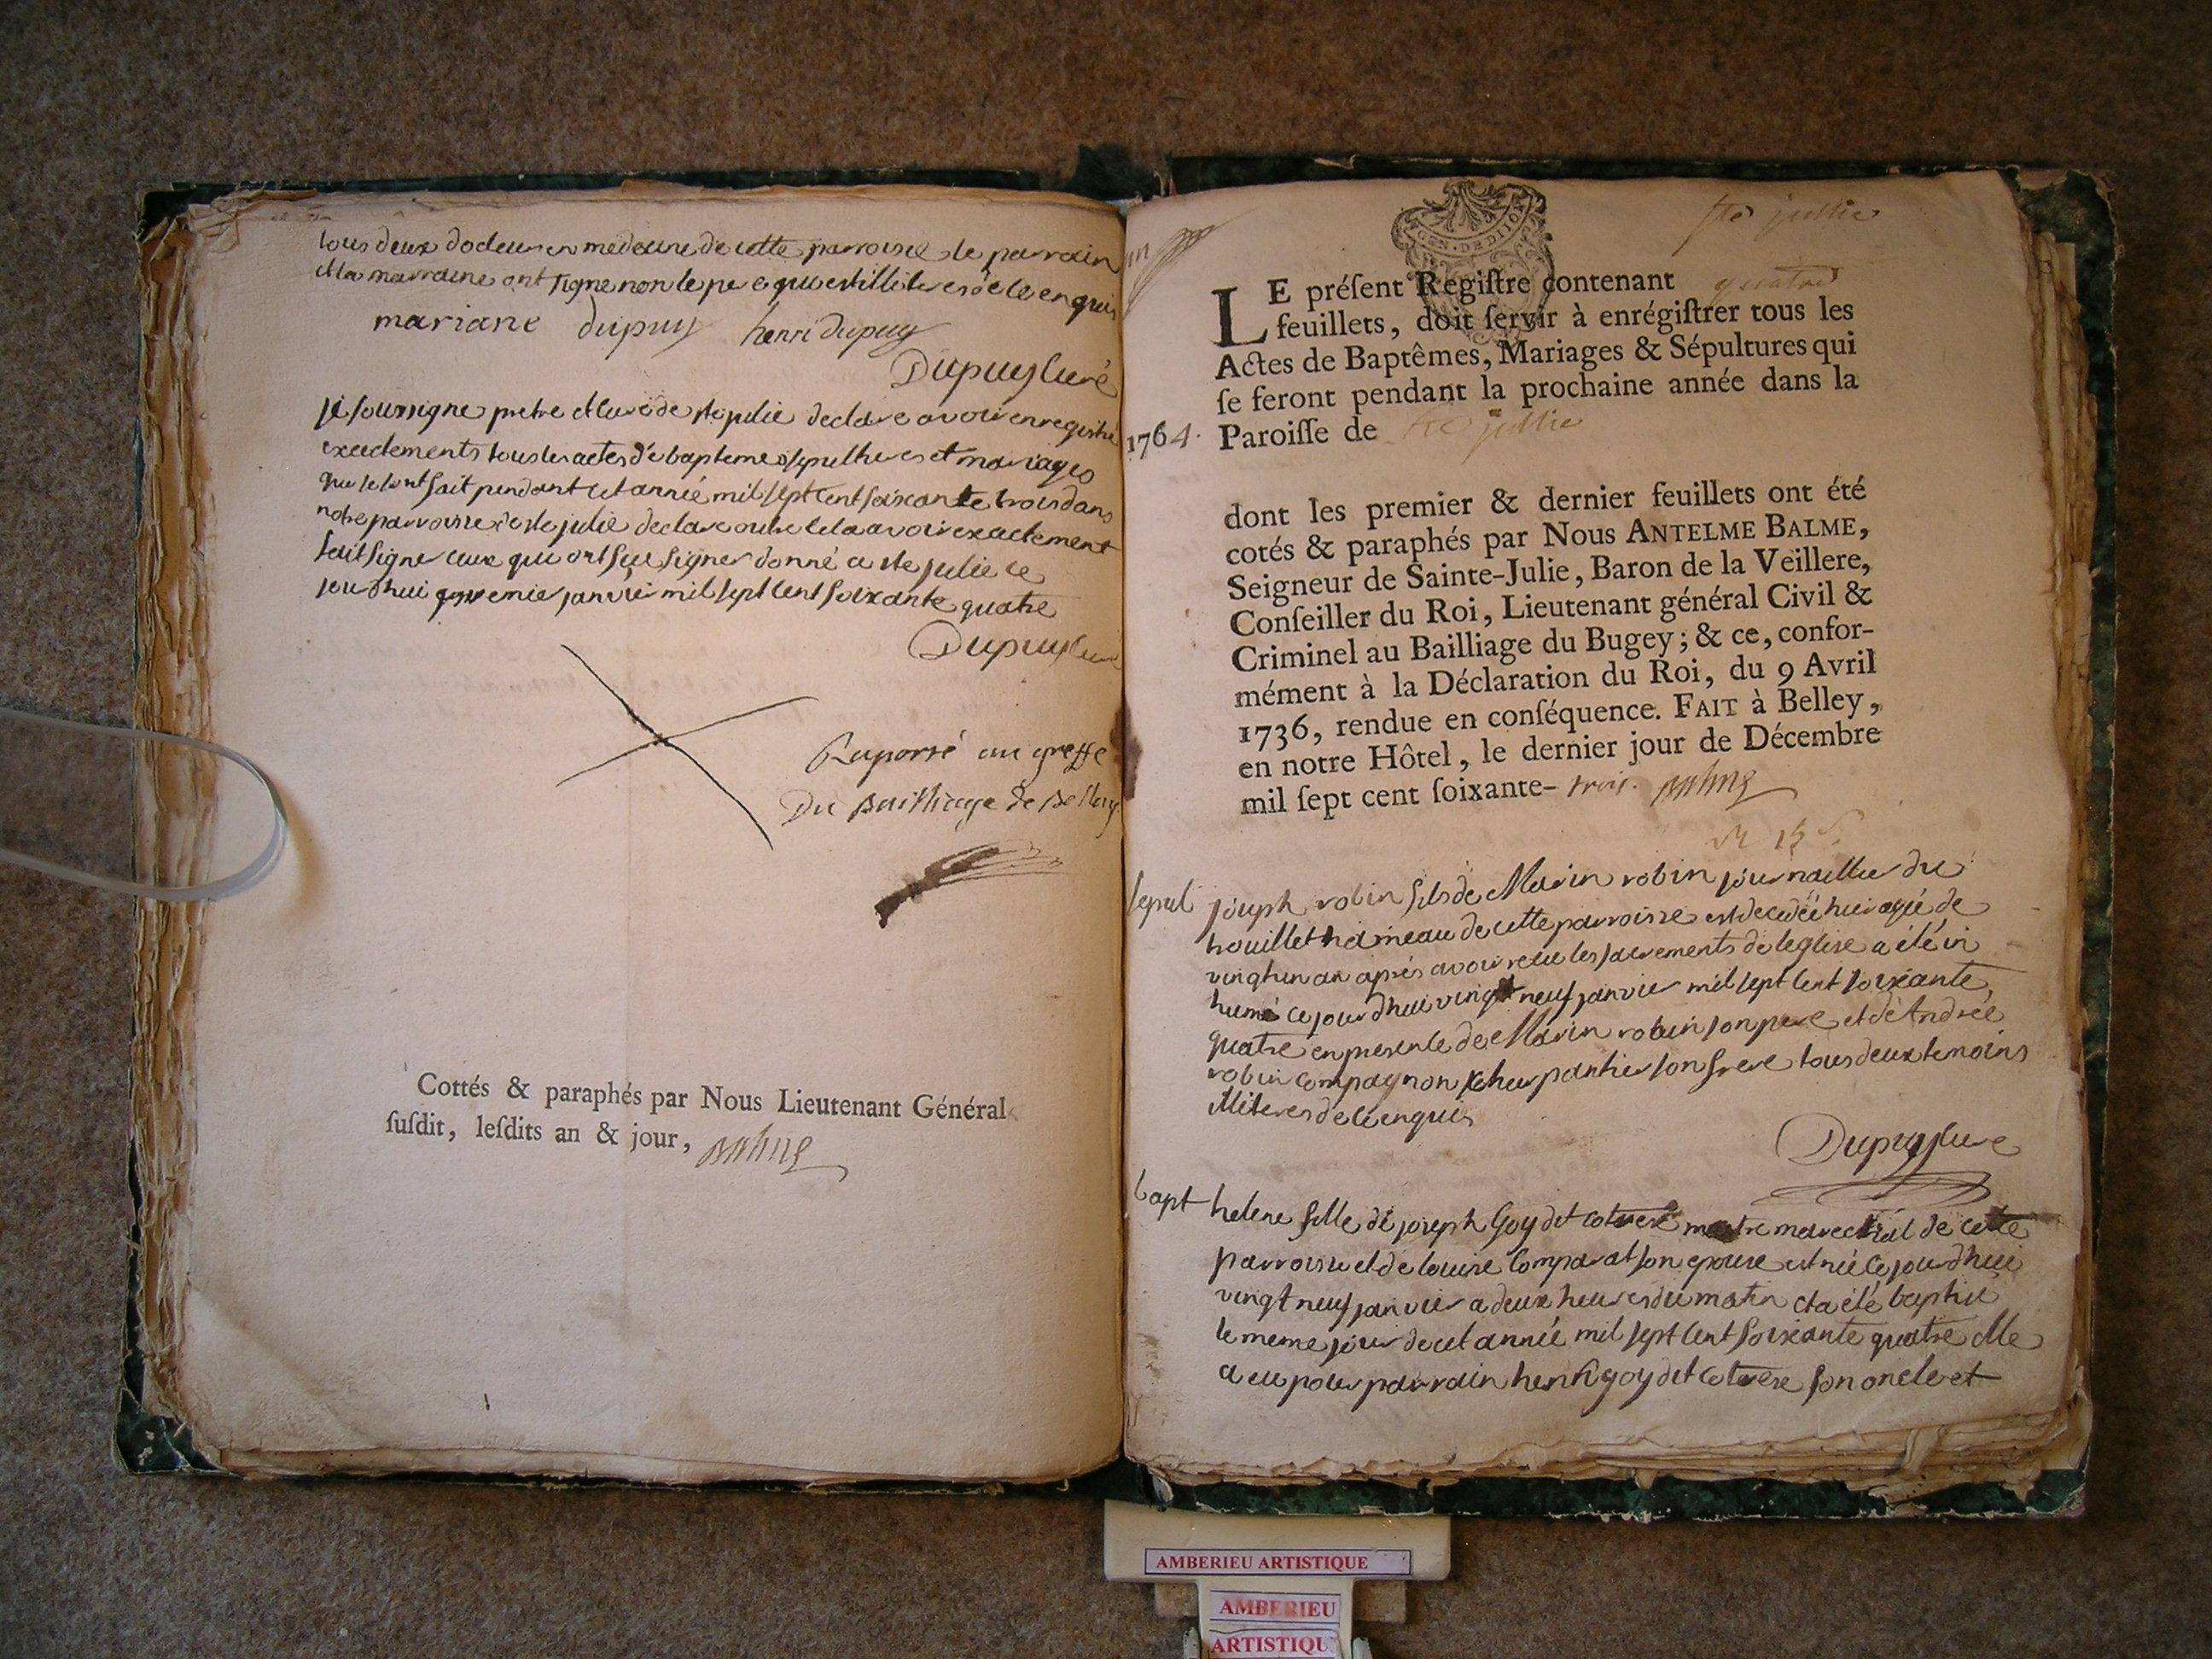 tous deux docteur en medecine de cette parroisse le parrain
et la marraine ont signe non le pere qui est illiteres de ce enquis
mariane dupuy henri dupuy
Dupuy curé
je soussigne pretre et curé de ste julie declare avoir enregistré
exactements tous les actes de bapteme sepultures et mariages
qui se sont fait pendant cet année mil sept cent soixante trois dans
notre parroisse de ste julie declare outre cela avoir exactement
fait signer ceux qui ont sçu signer donné a ste julie ce
jourdhui janvier mil sept cent soixante quatre
Dupuy curé
Raporté au greffe
Du Bailliage de Belley
Cottés & paraphés par Nous Lieutenant Général
ſuſdit, leſdits an & jour, Balme
ste jullie
GEN. DE DIJON
LE préſent Regiſtre contenant quatre
feuillets, doit ſervir à enrégiſtrer tous les
Actes de Baptêmes, Mariages & Sépultures qui
ſe feront pendant la prochaine année dans la
1764. Paroiſſe de ste jullie
dont les premier & dernier feuillets ont été
cotés & paraphés par Nous ANTELME BALME,
Seigneur de Sainte-Julie, Baron de la Veillere,
Conſeiller du Roi, Lieutenant général Civil &
Criminel au Bailliage du Bugey; & ce, confor-
mément à la Déclaration du Roi, du 9 Avril
1736, rendue en conſéquence. FAIT à Belley,
en notre Hôtel, le dernier jour de Décembre
mil ſept cent ſoixante- trois. Balme
sepul joseph robin fils de Marin robin journallier du
trouillet hameau de cette parroisse est decedé hier agé de
vingt un an aprés avoir reçu les sacrements de leglise a été in
humé ce jourdhui vingt neuf janvier mil sept cent soixante
quatre en presence de Marin robin son pere et de Andrée
robin compagnon charpantier son frere tous deux temoins
illiteres de ce enquis
Dupuy cure
bapt helene fille de joseph Goy dit cotvere maitre marechal de cette
parroisse et de louise Comparat son epouse est née ce jourdhui
vingt neuf janvier a deux heures du matin et a été baptisé
le meme jour de cet année mil sept cent soixante quatre elle
a eu pour parrain henri goy dit cotvere son oncle et
AMBERIEU ARTISTIQUE
AMBERIEU
ARTISTIQU